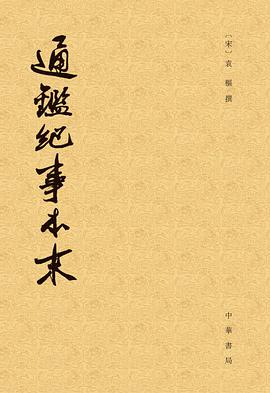 〔宋〕袁樞 撰
通鑑紀事本末
中華書局